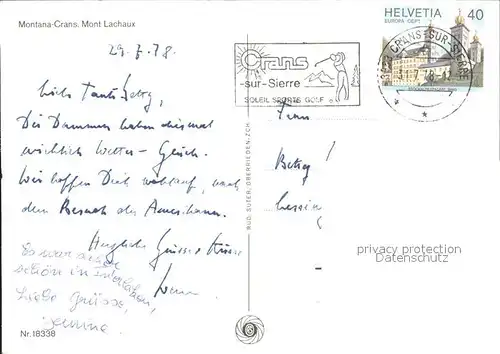 Montana-Crans. Mont Lachaux
29.7.78
Liebi Tante Betsy,
Die Dammen haben diesmal
wirklich Wetter-Glück.
Wir hoffen Dich wohlauf, nach
dem Besuch der Amerikaner.
Herzliche Grüsse + Küsse
Es war schön
schön in Interlaken,
Liebe Grüsse,
Nr. 18338
BÜD. SUTER, OBERRIEDEN-ZCH.
Crans
-sur-Sierre
SOLEIL SPORTS GOLF
HELVETIA 40
EUROPA CEPT
CRANS-SUR-SIERRE
Frau
Betsy
privacy protection
Datenschutz